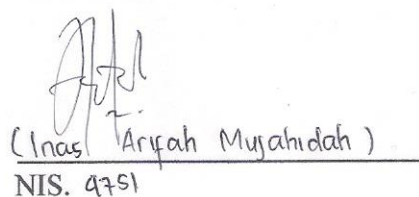 (Inas Arifah Mujahidah)
NIS. 9751